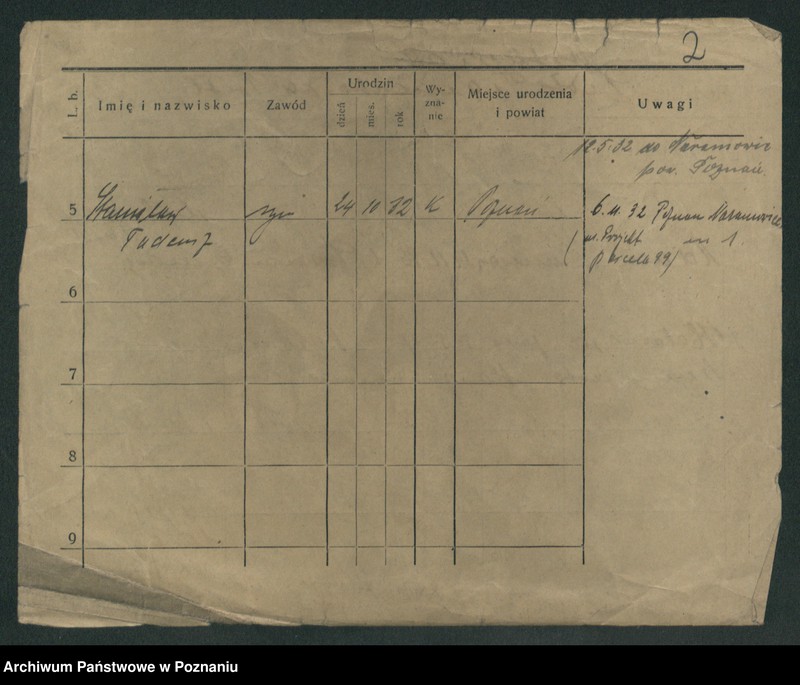 2
L. b.
Imię i nazwisko
Zawód
Urodzin
dzień
mies.
rok
Wy-
zna-
nie
Miejsce urodzenia
i powiat
Uwagi
12.5.32 do Naramowic
pow. Poznań.
5 Stanisław syn 24 10 32 K Poznań 6. 11. 32 Poznan Naramowice
Tadeusz
(ul. Projekt
parcela 99)
6
7
8
9
Archiwum Państwowe w Poznaniu